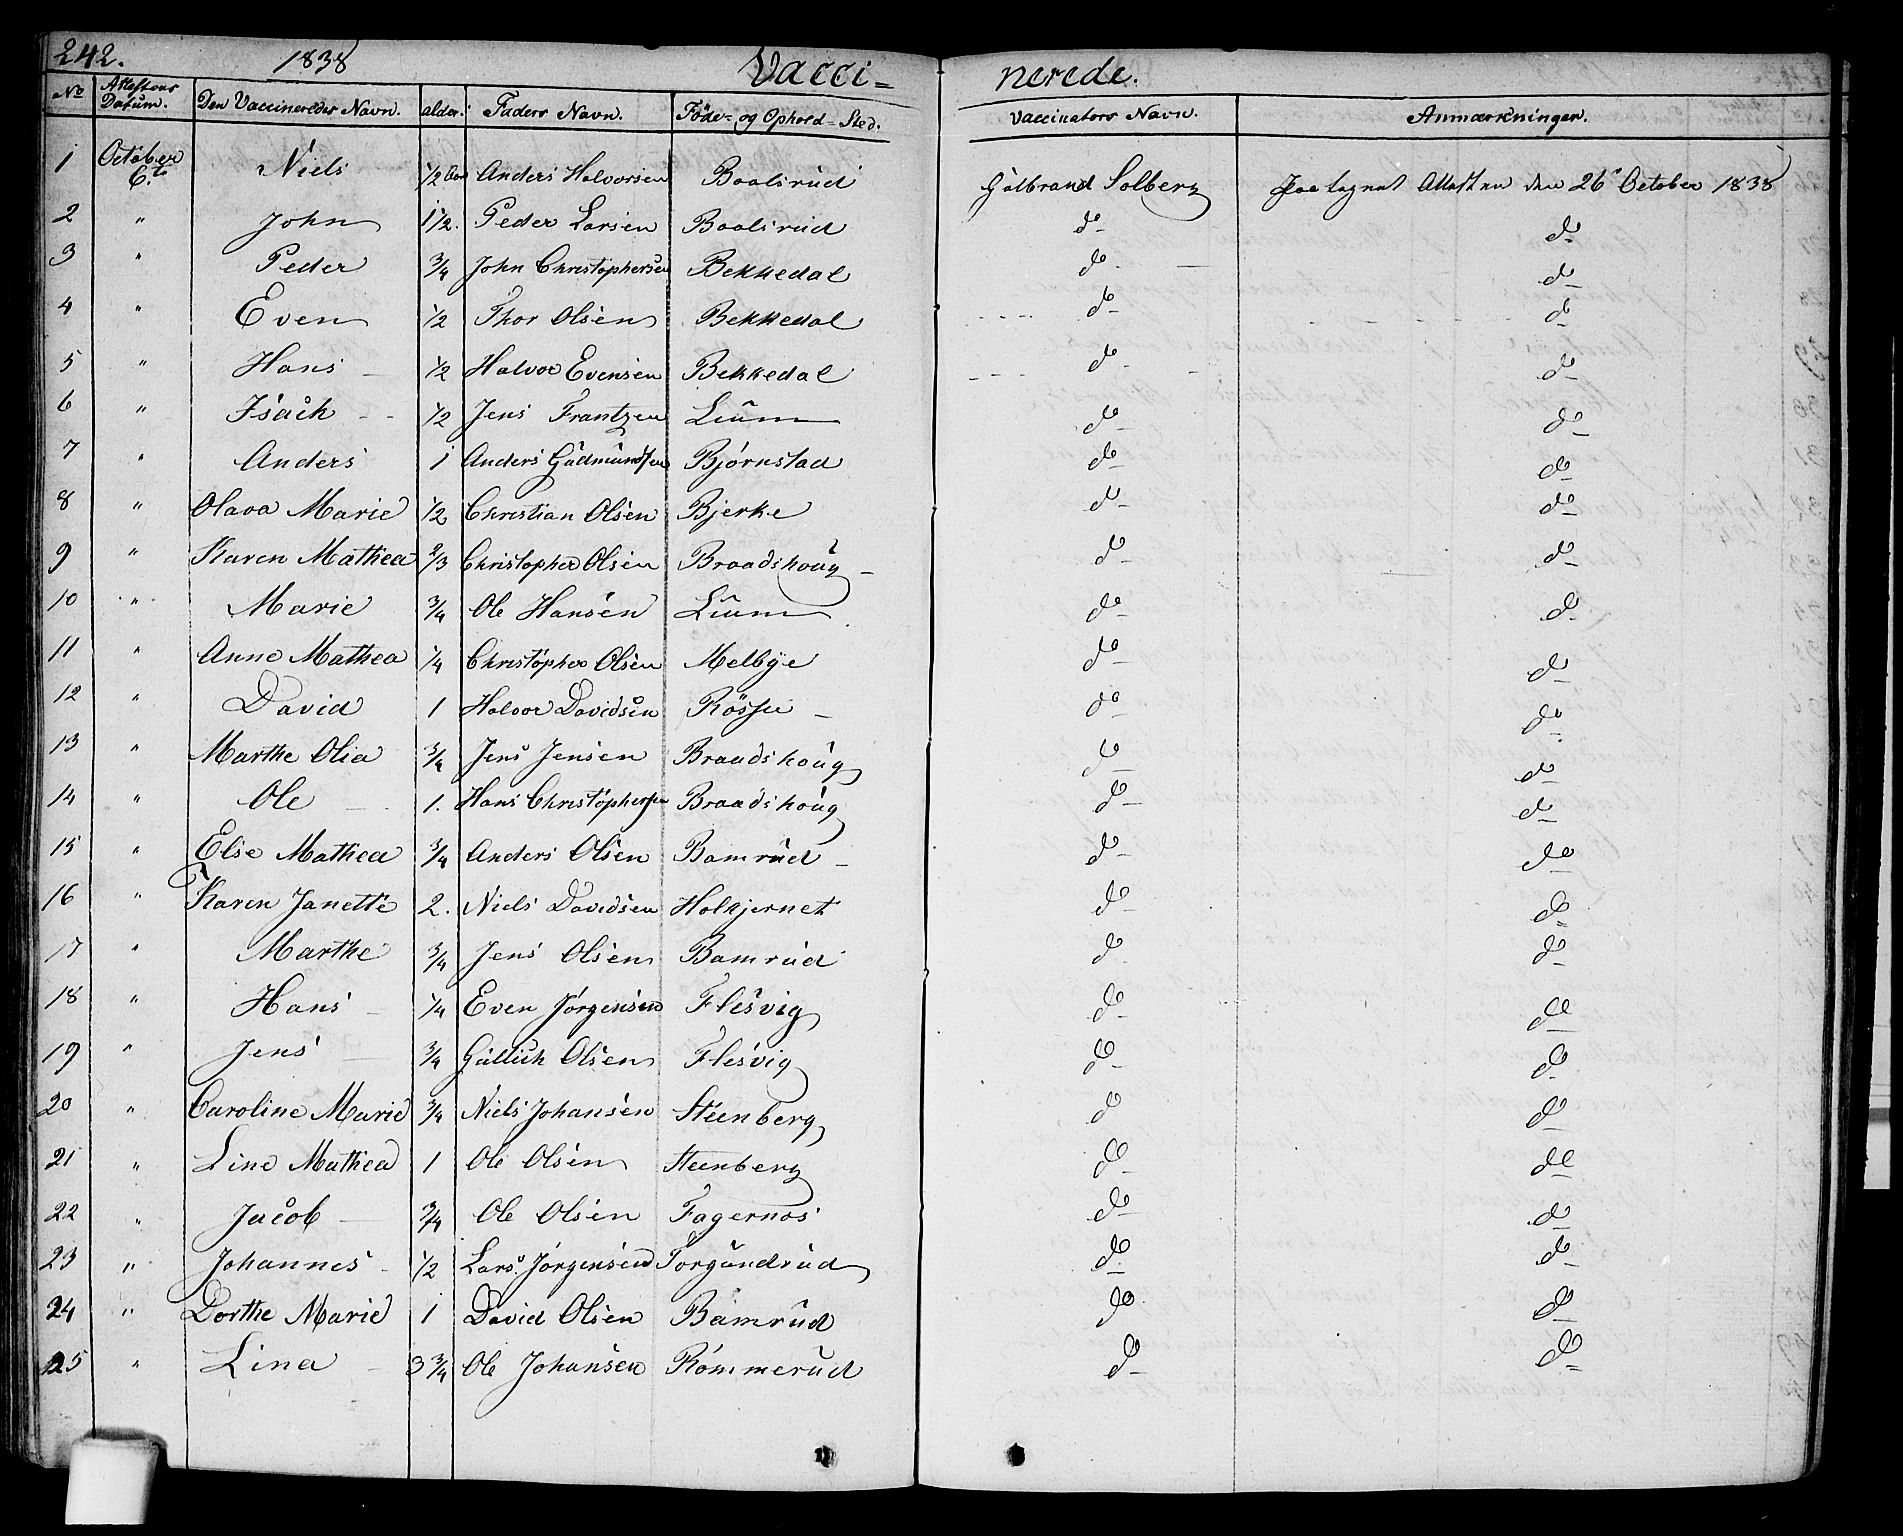 242. 1838 Vacci- nerede.
No Attestens Datum. Den Vaccineredes Navn. alder. Faders Navn. Føde- og Ophold-Sted. Vaccinators Navn. Anmærkninger.
1 October 6te Niels 1/2 Anders Halvorsen Baalsrud Gulbrand Solberg Attesten den 26 October 1838
2 " John 1 1/2. Peder Larsen Baalsrud do do
3 " Peder 3/4 John Christophersen Bekkedal do do
4 " Even 1/2 Thor Olsen Bekkedal do do
5 " Hans 1/2 Halvor Evensen Bekkedal do do
6 " Isach 1/2 Jens Frantzen Lium do do
7 " Anders 1 Anders Gudmundsen Bjørnstad do do
8 " Olava Marie 1/2 Christian Olsen Bjerke do do
9 " Karen Mathea 2/3 Christopher Olsen Braadshoug do do
10 " Marie 3/4 Ole Hansen Lium do do
11 " Anne Mathea 1/4 Christopher Olsen Melbye do do
12 " David 1 Halvor Davidsen do do
13 " Marthe Olia 3/4 Jens Jensen Braadshoug do do
14 " Ole 1. Hans Christophersen Braadshoug do do
15 " Else Mathea 3/4 Anders Olsen Bamrud do do
16 " Karen Janette 2. Niels Davidsen Holkjernet do do
17 " Marthe 3/4 Jens Olsen Bamrud do do
18 " Hans 1/4 Even Jørgensen Flesvig do do
19 " Jens 3/4 Gullich Olsen Flesvig do do
20 " Caroline Marie 3/4 Niels Johansen Steenberg do do
21 " Line Mathea 1 Ole Olsen Steenberg do do
22 " Jacob 3/4 Ole Olsen Fagernæs do do
23 " Johannes 1/2 Lars Jørgensen Torgundrud do do
24 " Dorthe Marie 1 David Olsen Bamrud do do
25 " Lina 3 3/4 Ole Johansen Rømmerud do do